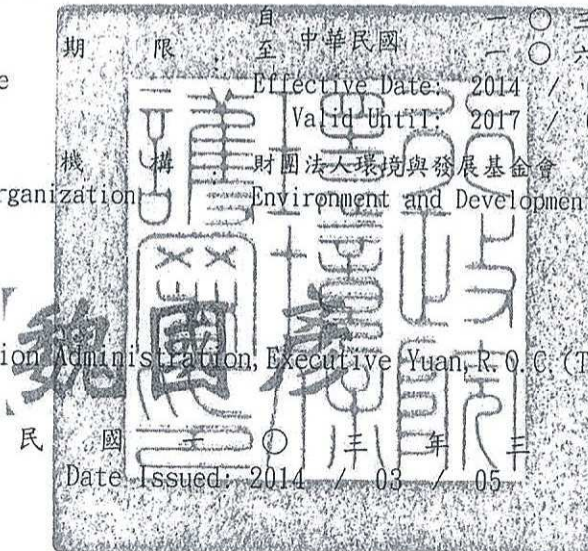 自 一〇
期 限 : 至 中華民國 一〇六
Effective Date: 2014 /
Valid Until: 2017 /
機 構 : 財團法人環境與發展基金會
rganization Environment and Developmen
魏國彥
ion Administration, Executive Yuan, R.O.C. (T
民 國 一 〇 三 年 三
Date Issued: 2014 / 03 / 05
行政院環境保護署